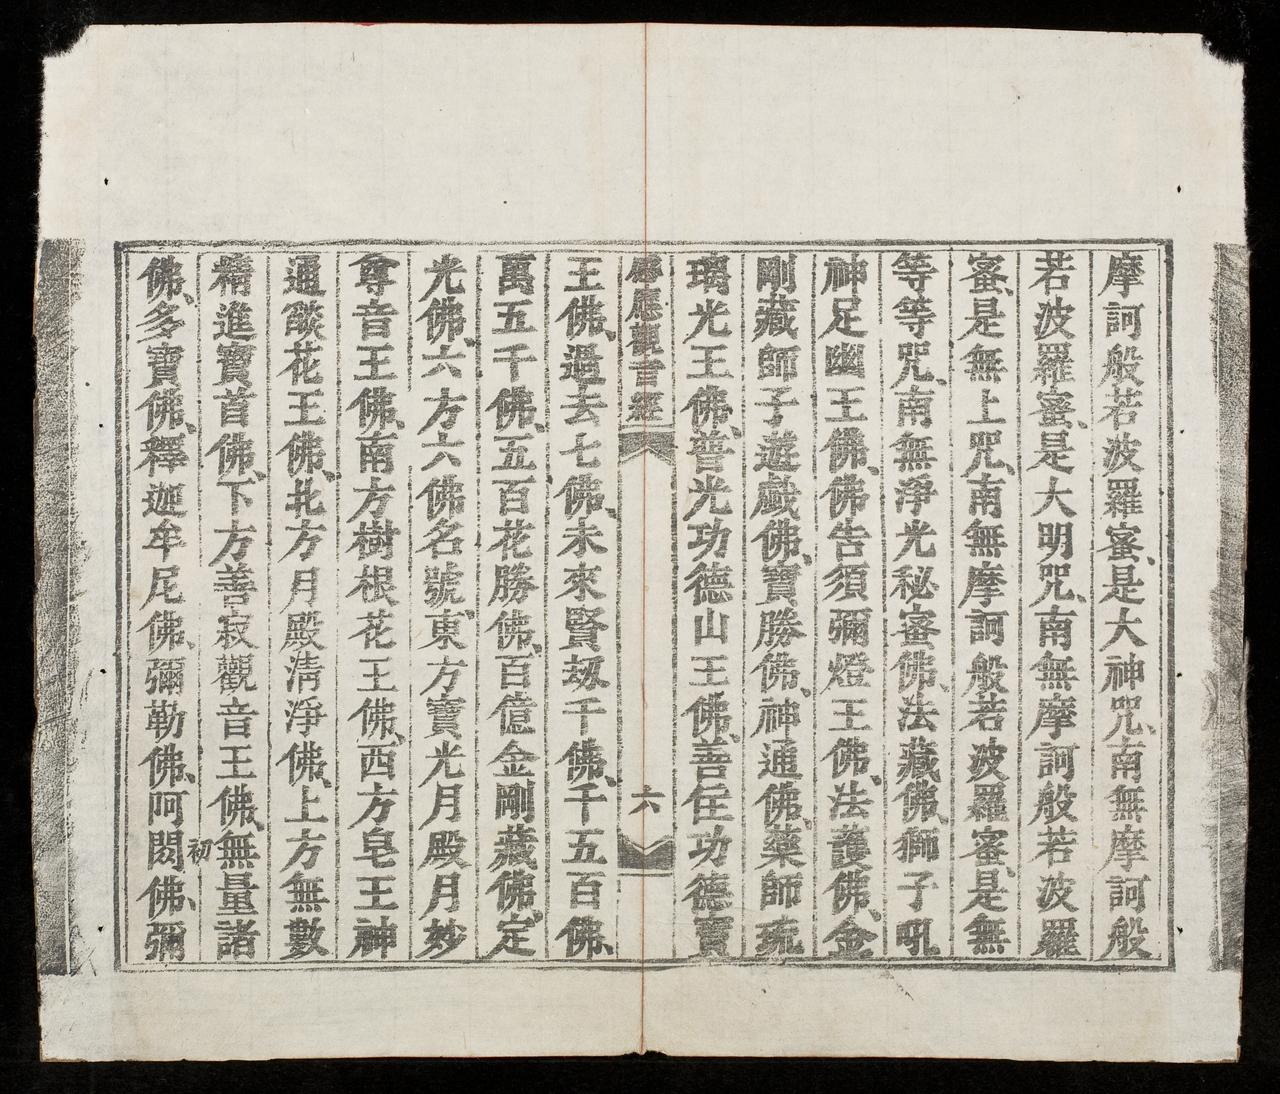 摩訶般若波羅蜜、是大神咒、南無摩訶般
若波羅蜜、是大明咒、南無摩訶般若波羅
蜜、是無上咒、南無摩訶般若波羅蜜、是無
等等咒、南無淨光秘蜜佛、法藏佛、獅子吼
神足幽王佛、佛告須彌燈王佛、法護佛、金
剛藏師子遊戲佛、寶勝佛、神通佛、藥師琉
璃光王佛、普光功德山王佛、善住功德寶
應觀音經
六
王佛、過去七佛、未來賢劫千佛、千五百佛、
萬五千佛、五百花勝佛、百億金剛藏佛、定
光佛、六方六佛名號、東方寶光月殿月妙
尊音王佛、南方樹根花王佛、西方皂王神
通燄花王佛、北方月殿清淨佛、上方無數
精進寶首佛、下方善寂觀音王佛、無量諸
初
佛、多寶佛、釋迦牟尼佛、彌勒佛、阿閦佛、彌